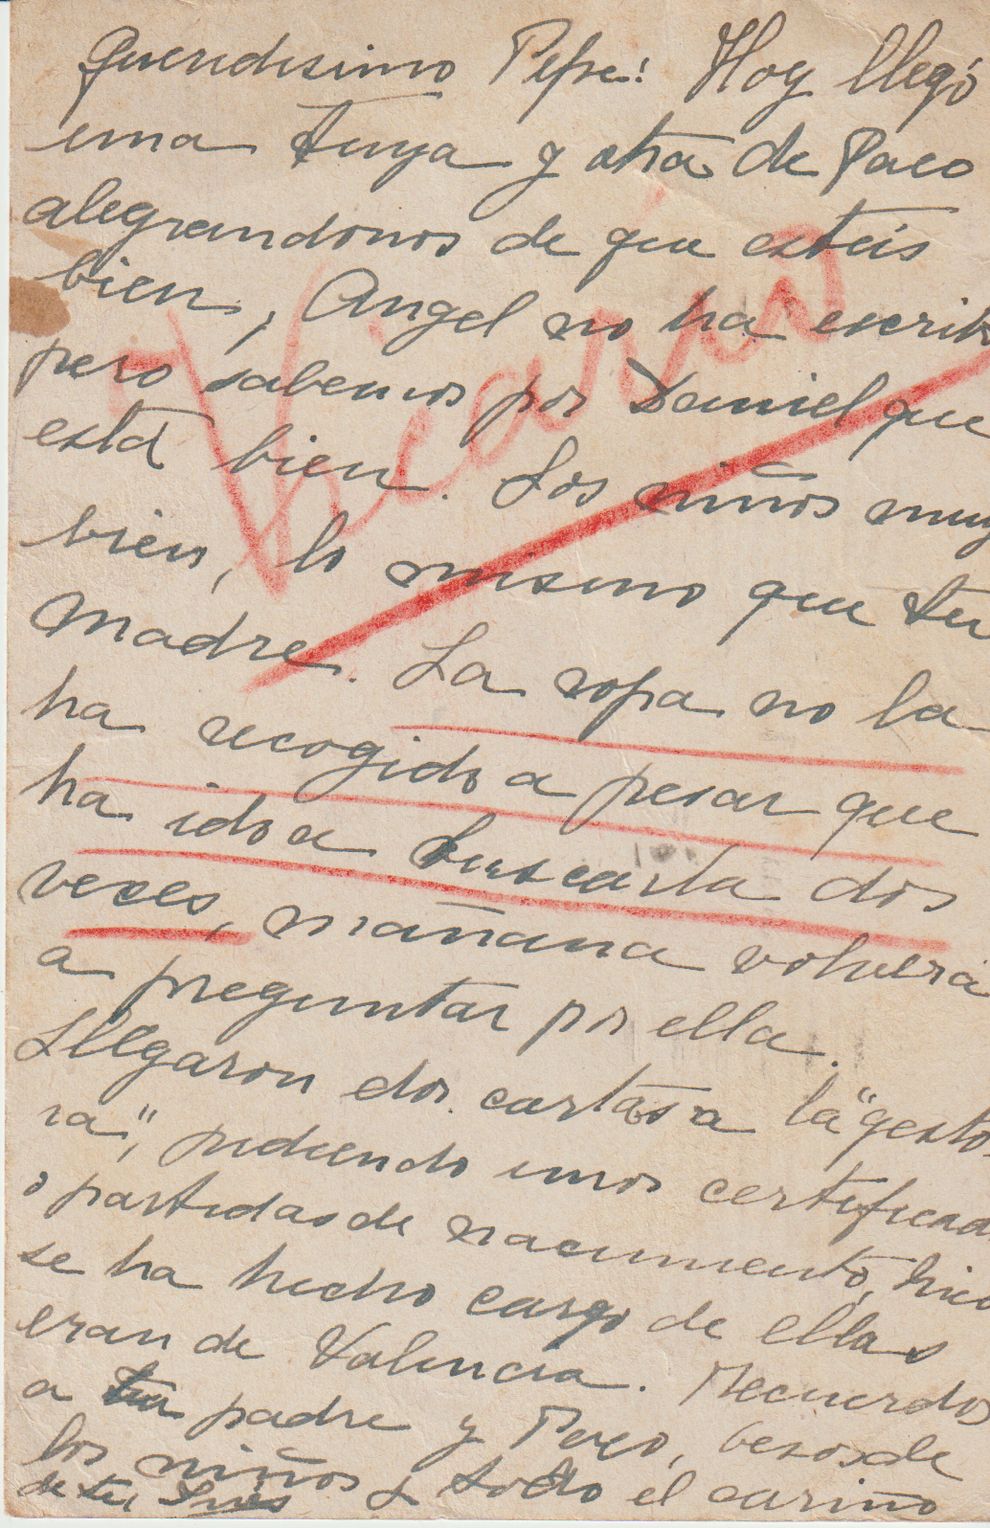 Queridisimo Pepe! Hoy llegó
una tuya y otra de Paco
alegrandonos de que estéis
bien, Angel no ha escrito
pero sabemos por Daniel que
está bien. Los niños muy
bien, lo mismo que tu
madre. La ropa no la
ha recogido a pesar que
ha ido a buscarla dos
veces, mañana volverá
a preguntar por ella.
Llegaron dos cartas a la "gesto
ra", pidiendo unos certificad
o partidas de nacimiento,
se ha hecho cargo de ellas
eran de Valencia. Recuerdos
a tu padre y Paco, besos de
los niños y todo el cariño
de tu